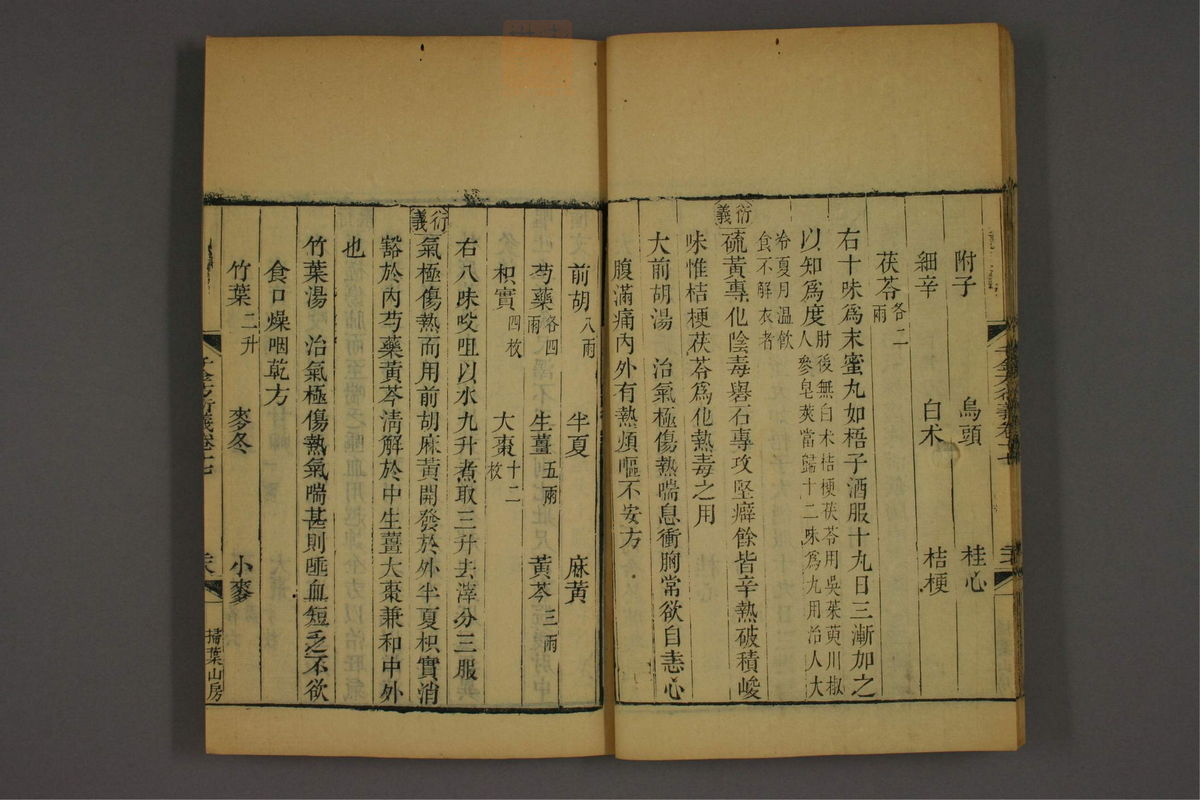 附子 烏頭 桂心
細辛 白朮 桔梗
茯苓各二兩
右十味爲末蜜丸如梧子酒服十九日三漸加之
以知爲度肘後無白朮桔梗茯苓用吳茱萸川椒人參皂莢當歸十二味爲丸用治人大
冷夏月溫飲食不解衣者
衍義
硫黃專化陰毒礜石專攻堅癖餘皆辛熱破積峻
味惟桔梗茯苓爲化熱毒之用
大前胡湯 治氣極傷熱喘息衝胸常欲自恚心
腹滿痛內外有熱煩嘔不安方
前胡八兩 半夏 麻黃
芍藥各四兩 生薑五兩 黃芩三兩
枳實四枚 大棗十二枚
右八味㕮咀以水九升煮取三升去滓分三服
衍義
氣極傷熱而用前胡麻黃開發於外半夏枳實消
豁於內芍藥黃芩淸解於中生薑大棗兼和中外
也
竹葉湯 治氣極傷熱氣喘甚則唾血短乏不欲
食口燥咽乾方
竹葉二升 麥冬 小麥
千金方衍義卷十七
掃葉山房